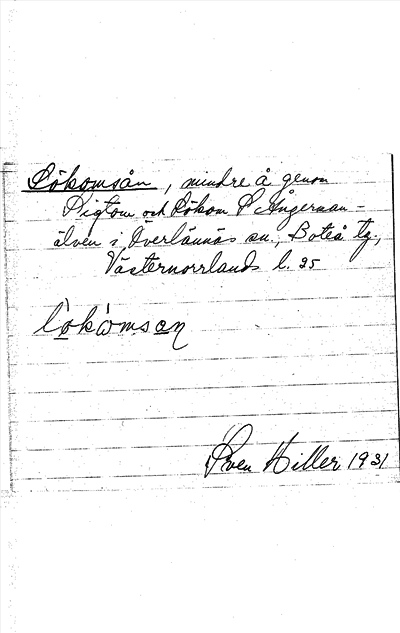 Lökomsån, mindre å genom
Sigtom och Lökom t. Ångerman-
älven i Överlännäs sn., Boteå tg.,
Västernorrlands l. 25
lökomsan
Sven Hiller 1931